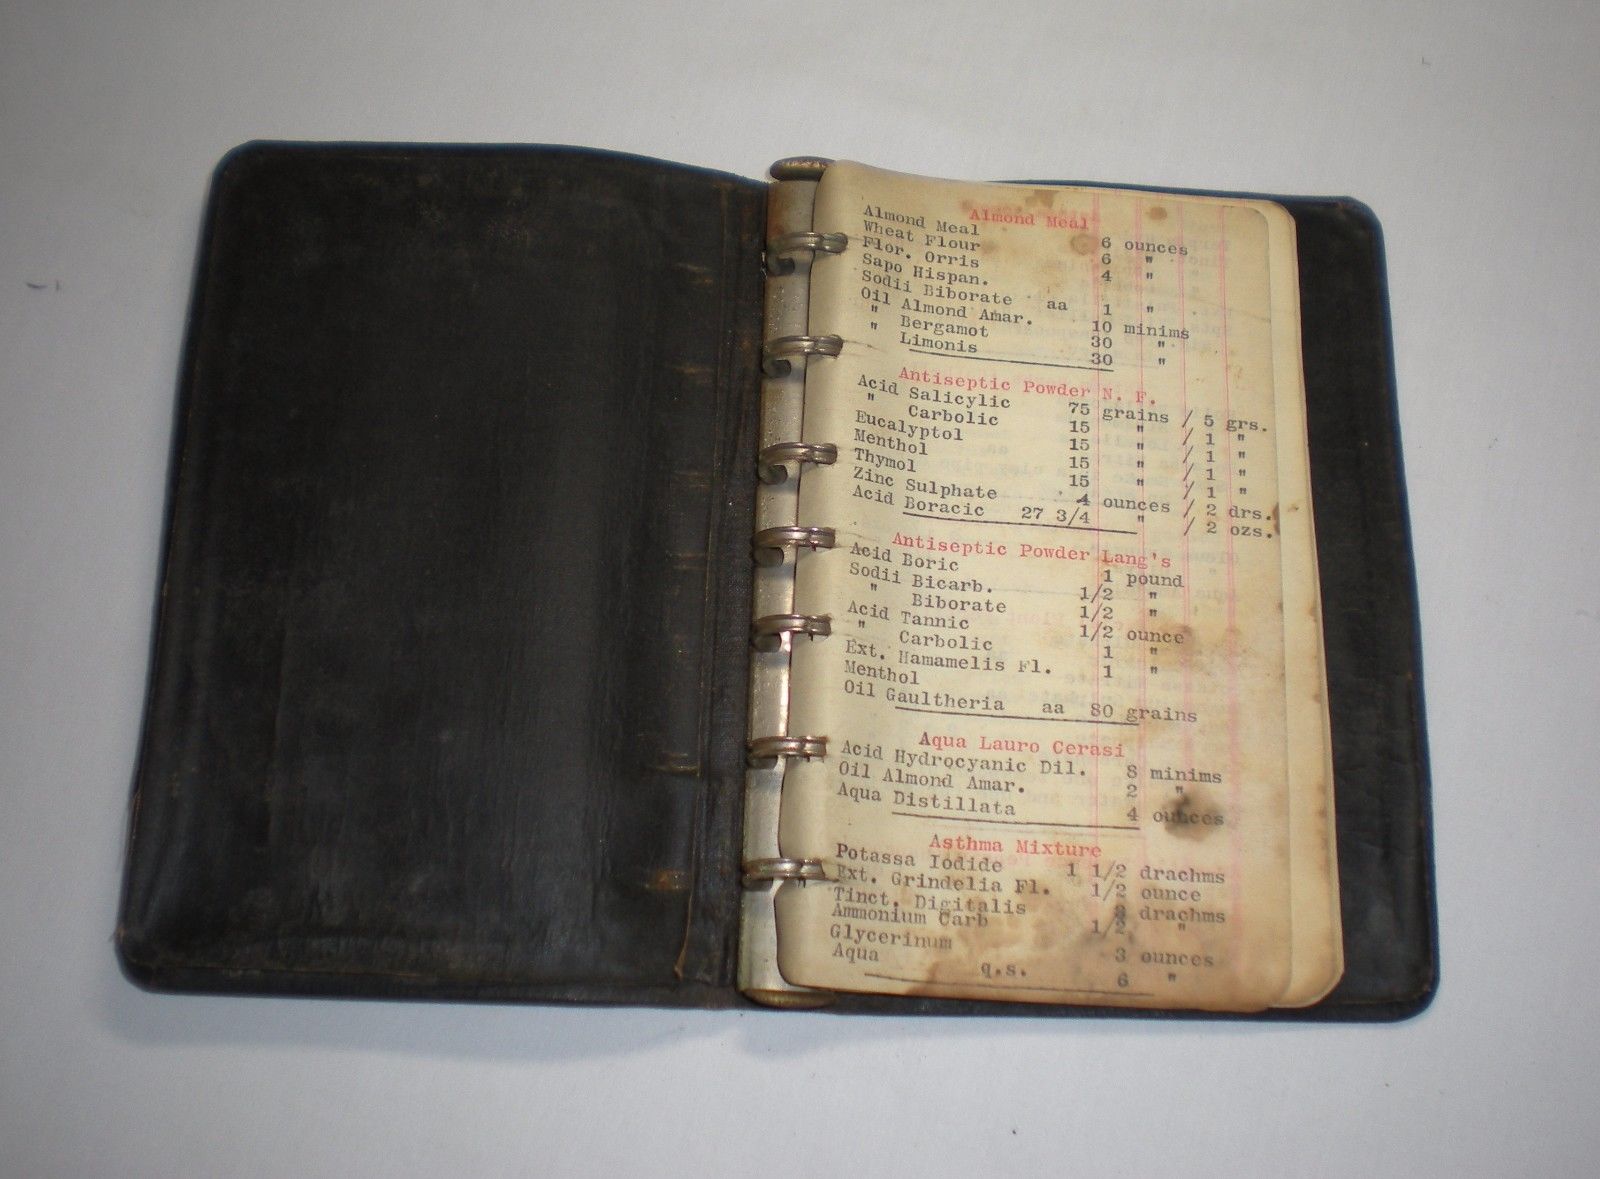 Almond Meal
Almond Meal 6 ounces
Wheat Flour 6 "
Flor. Orris 4 "
Sapo Hispan.
Sodii Biborate aa 1 "
Oil Almond Amar. 10 minims
" Bergamot 30 "
" Limonis 30 "
Antiseptic Powder N. F.
Acid Salicylic 75 grains / 5 grs.
" Carbolic 15 " / 1 "
Eucalyptol 15 " / 1 "
Menthol 15 " / 1 "
Thymol 15 " / 1 "
Zinc Sulphate 4 ounces / 2 drs.
Acid Boracic 27 3/4 " / 2 ozs.
Antiseptic Powder Lang's
Acid Boric 1 pound
Sodii Bicarb. 1/2 "
" Biborate 1/2 "
Acid Tannic 1/2 ounce
" Carbolic 1 "
Ext. Hamamelis Fl. 1 "
Menthol
Oil Gaultheria aa 80 grains
Aqua Lauro Cerasi
Acid Hydrocyanic Dil. 8 minims
Oil Almond Amar. 2 "
Aqua Distillata 4 ounces
Asthma Mixture
Potassa Iodide 1 1/2 drachms
Ext. Grindelia Fl. 1/2 ounce
Tinct. Digitalis drachms
Ammonium Carb 1/2 "
Glycerinum 3 ounces
Aqua q.s. 6 "